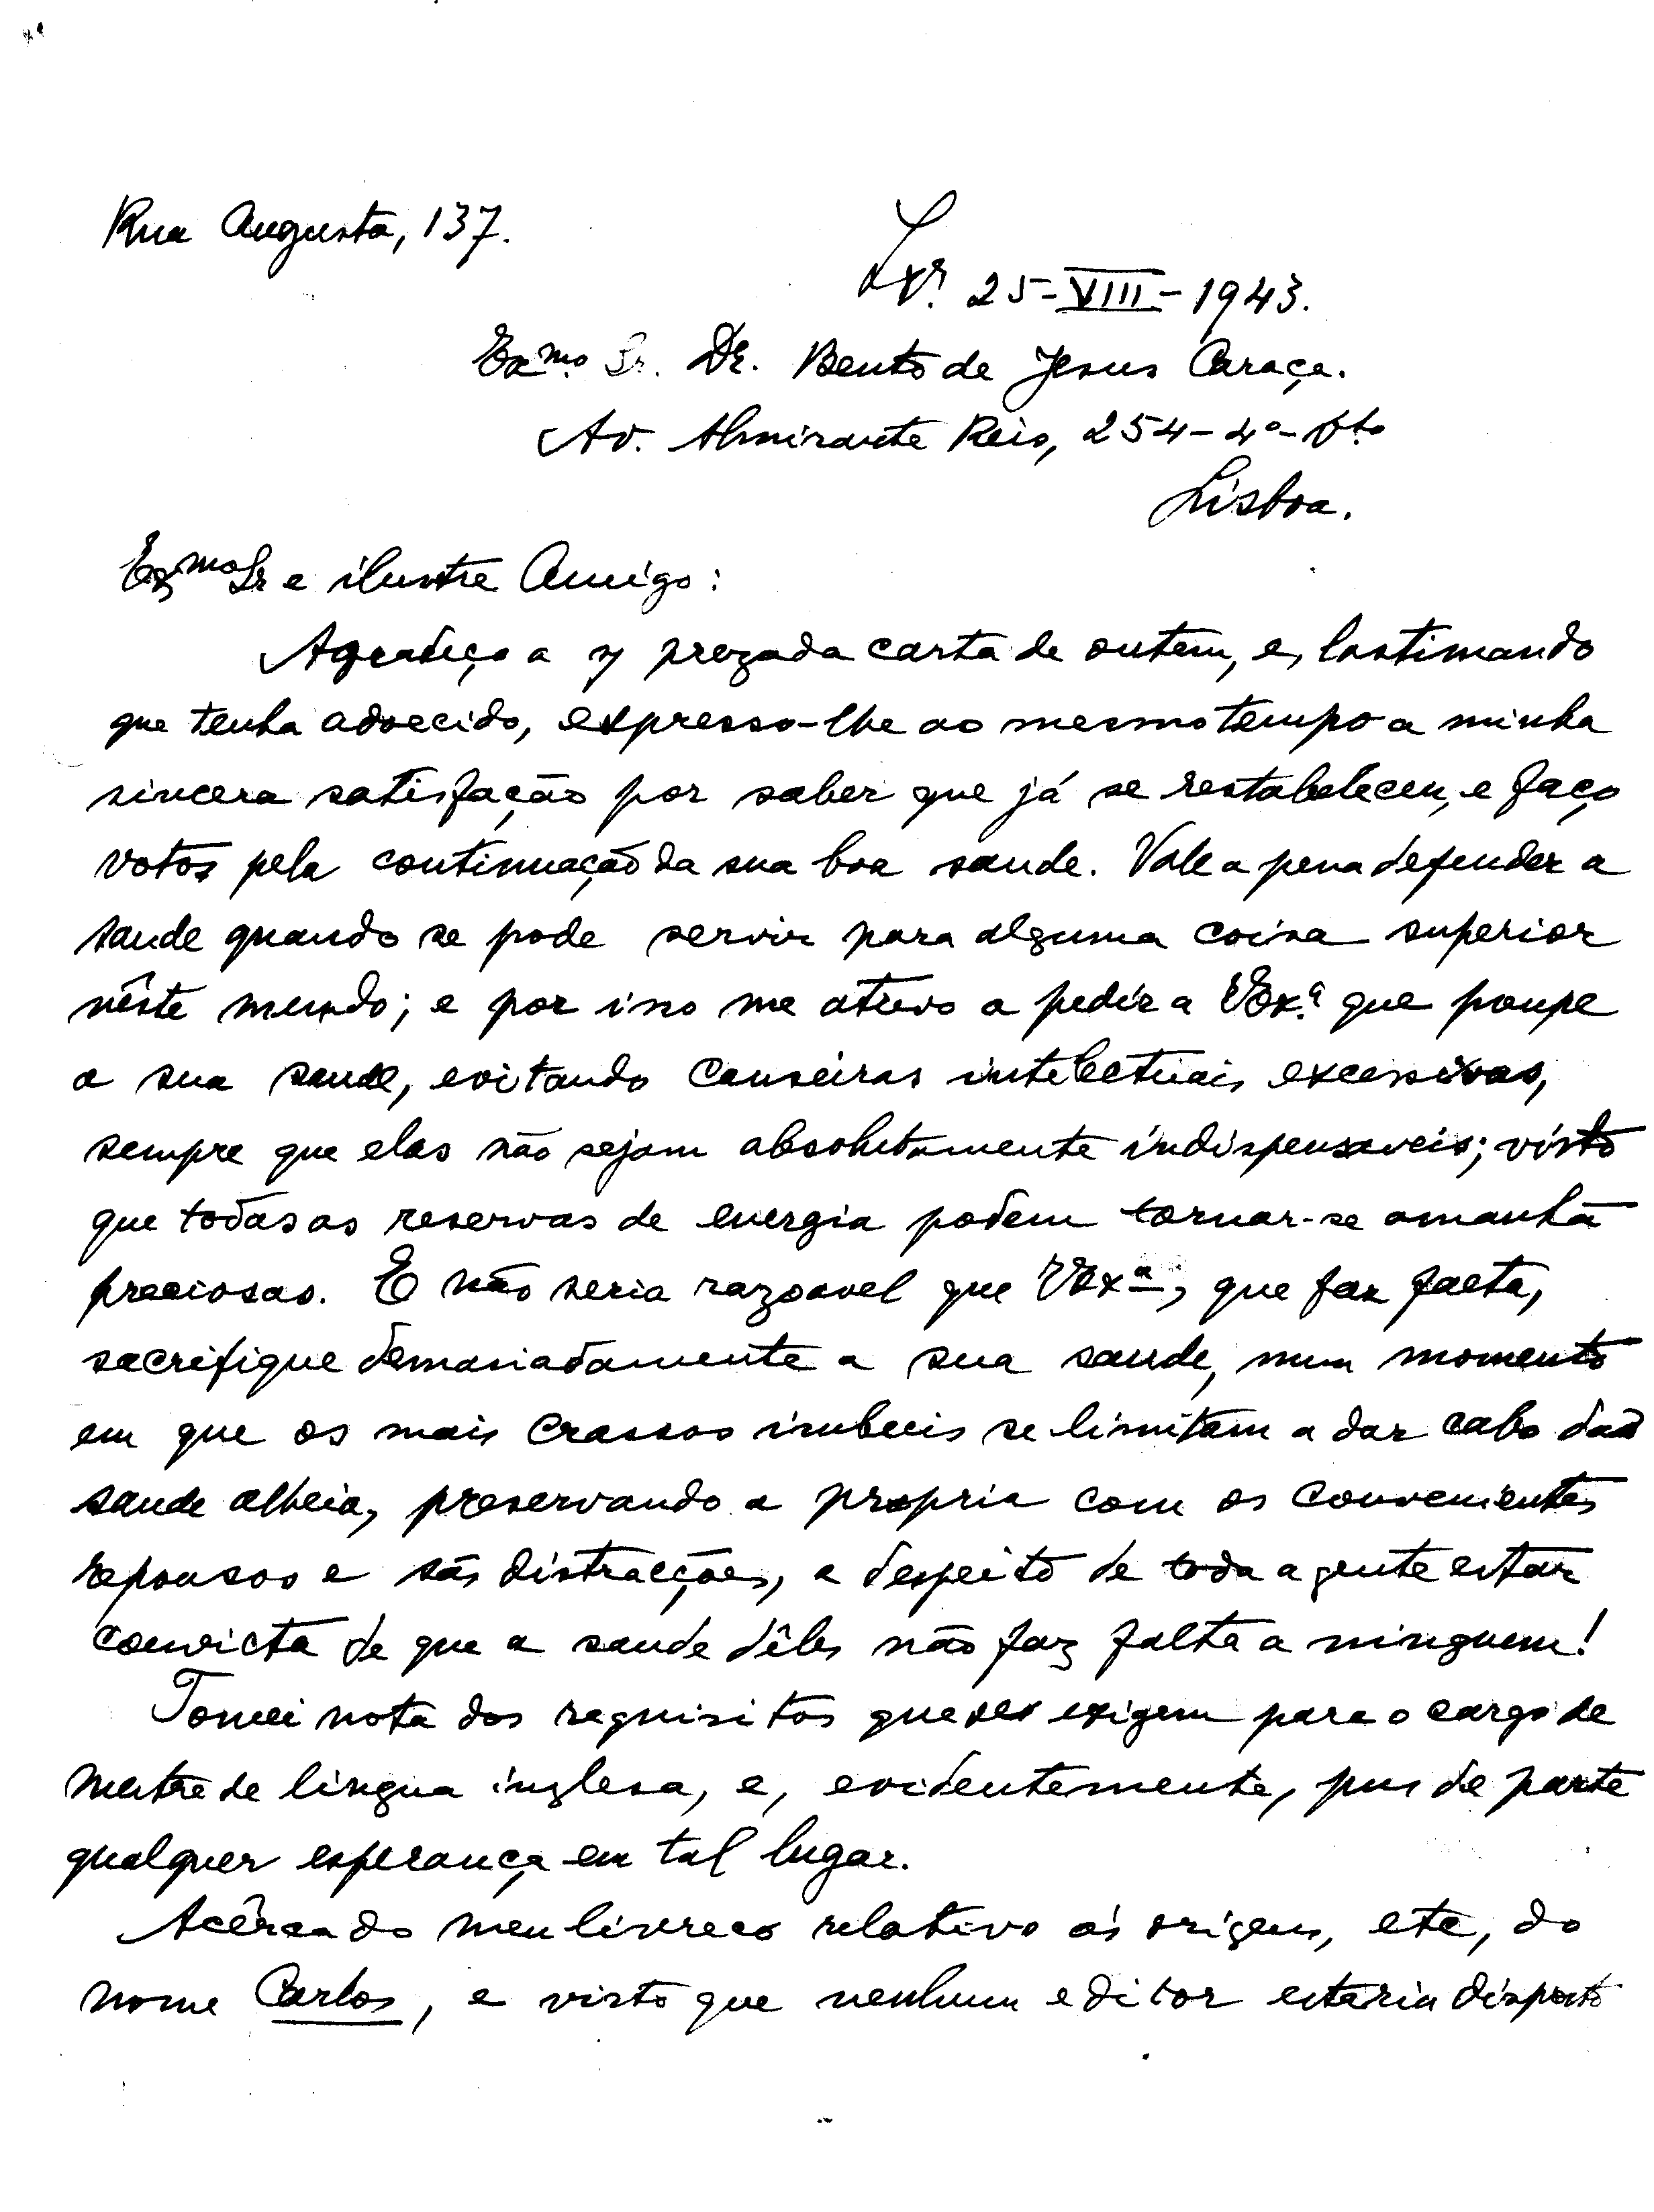 Rua Augusta, 137.
Lxª. 25-VIII-1943.
Exmo. Sr. Dr. Bento de Jesus Caraça.
Av. Almirante Reis, 254-4º-Dto
Lisboa.
Exmo Sr e ilustre Amigo:
Agradeço a prezada carta de ontem, e, lastimando
que tenha adoecido, expresso-lhe ao mesmo tempo a minha
sincera satisfação por saber que já se restabeleceu, e faço
votos pela continuação da sua boa saude. Vale a pena defender a
saude quando se pode servir para alguma coisa superior
nêste mundo; e por isso me atrevo a pedir a VExª. que poupe
a sua saude, evitando canseiras intelectuais excessivas,
sempre que elas não sejam absolutamente indispensaveis; visto
que todas as reservas de energia podem tornar-se amanhã
preciosas. E não seria razoavel que VExª, que faz falta,
sacrifique demasiadamente a sua saude, num momento
em que os mais crassos imbecis se limitam a dar cabo da
saude alheia, preservando a propria com os convenientes
repousos e sãs distracções, a despeito de toda a gente estar
convicta de que a saude dêles não faz falta a ninguem!
Tomei nota dos requisitos que se exigem para o cargo de
mestre de lingua inglesa, e, evidentemente, pus de parte
qualquer esperança em tal lugar.
Acêrca do meu livreco relativo ás origens, etc, do
nome Carlos, e visto que nenhum editor estaria disposto